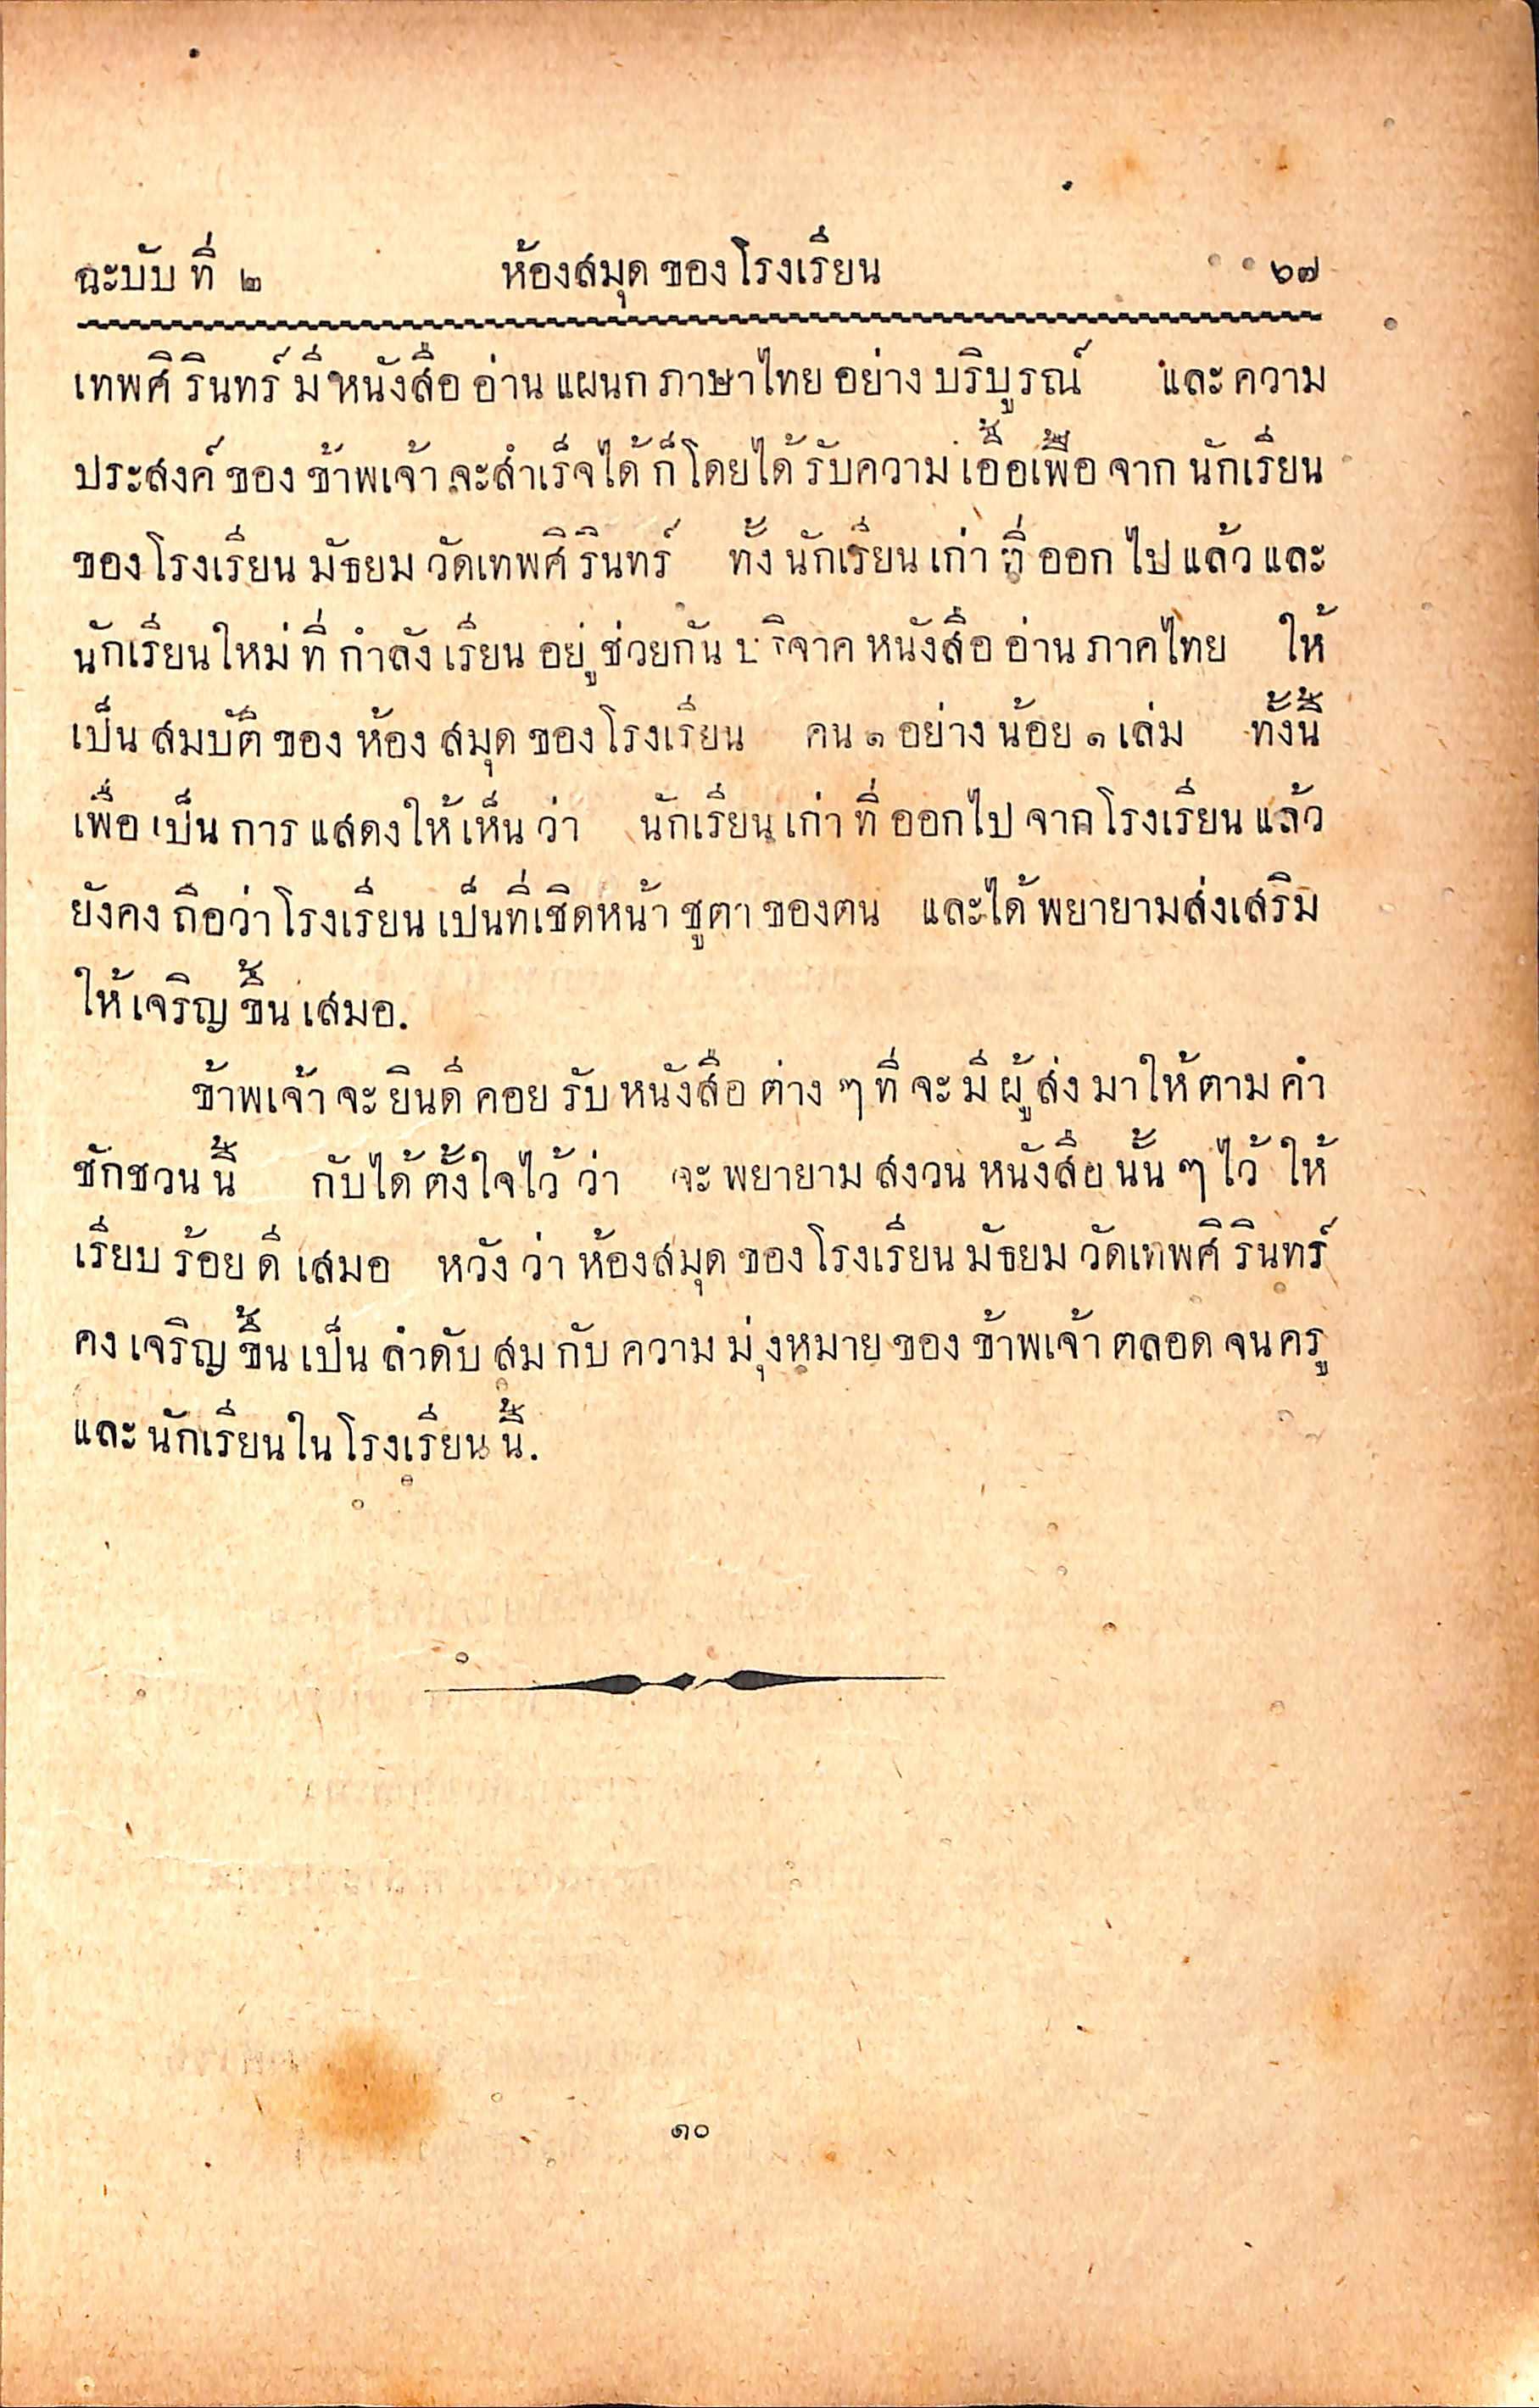 ฉะบับที่ ๒ ห้องสมุดของโรงเรียน ๖๗
เทพศิรินทร์มีหนังสืออ่านแผนกภาษาไทยอย่างบริบูรณ์ และความ
ประสงค์ของข้าพเจ้าจะสำเร็จได้ก็โดยได้รับความเอื้อเฟื้อจากนักเรียน
ของโรงเรียนมัธยมวัดเทพศิรินทร์ ทั้งนักเรียนเก่าที่ออกไปแล้วและ
นักเรียนใหม่ที่กำลังเรียนอยู่ช่วยกันบริจาคหนังสืออ่านภาคไทย ให้
เป็นสมบัติของห้องสมุดของโรงเรียน คน ๑ อย่างน้อย ๑ เล่ม ทั้งนี้
เพื่อเป็นการแสดงให้เห็นว่า นักเรียนเก่าที่ออกไปจากโรงเรียนแล้ว
ยังคงถือว่าโรงเรียนเป็นที่เชิดหน้าชูตาของตน และได้พยายามส่งเสริม
ให้เจริญขึ้นเสมอ.
ข้าพเจ้าจะยินดีคอยรับหนังสือต่าง ๆ ที่จะมีผู้ส่งมาให้ตามคำ
ชักชวนนี้ กับได้ตั้งใจไว้ว่า จะพยายามสงวนหนังสือนั้น ๆ ไว้ให้
เรียบร้อยดีเสมอ หวังว่าห้องสมุดของโรงเรียนมัธยมวัดเทพศิรินทร์
คงเจริญขึ้นเป็นลำดับสมกับความมุ่งหมายของข้าพเจ้าตลอดจนครู
และนักเรียนในโรงเรียนนี้.
๑๐